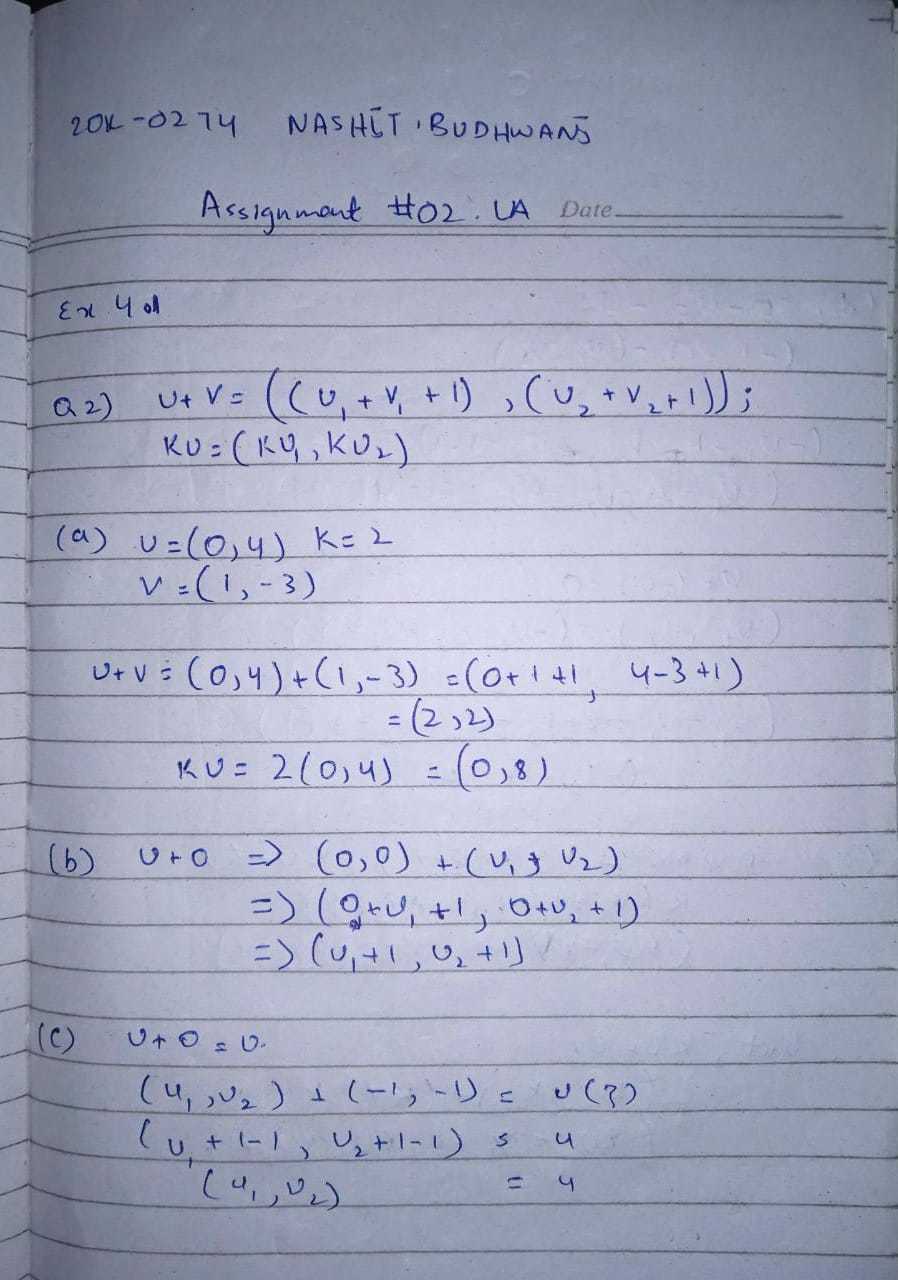 20K-0274 NASHIT BUDHWANI
Assignment #02. LA Date
Ex 4.1
Q2) U+V = ((U₁+V₁+1), (U₂+V₂+1));
KU = (KU₁, KU₂)
(a) U=(0,4) K=2
V=(1,-3)
U+V = (0,4)+(1,-3) = (0+1+1, 4-3+1)
= (2,2)
KU = 2(0,4) = (0,8)
(b) U+0 => (0,0) + (U₁, U₂)
=> (0+U₁+1, 0+U₂+1)
=> (U₁+1, U₂+1)
(C) U+0 = U.
(U₁,U₂) + (-1,-1) = U (?)
(U₁+1-1, U₂+1-1) = U
(U₁,U₂) = U